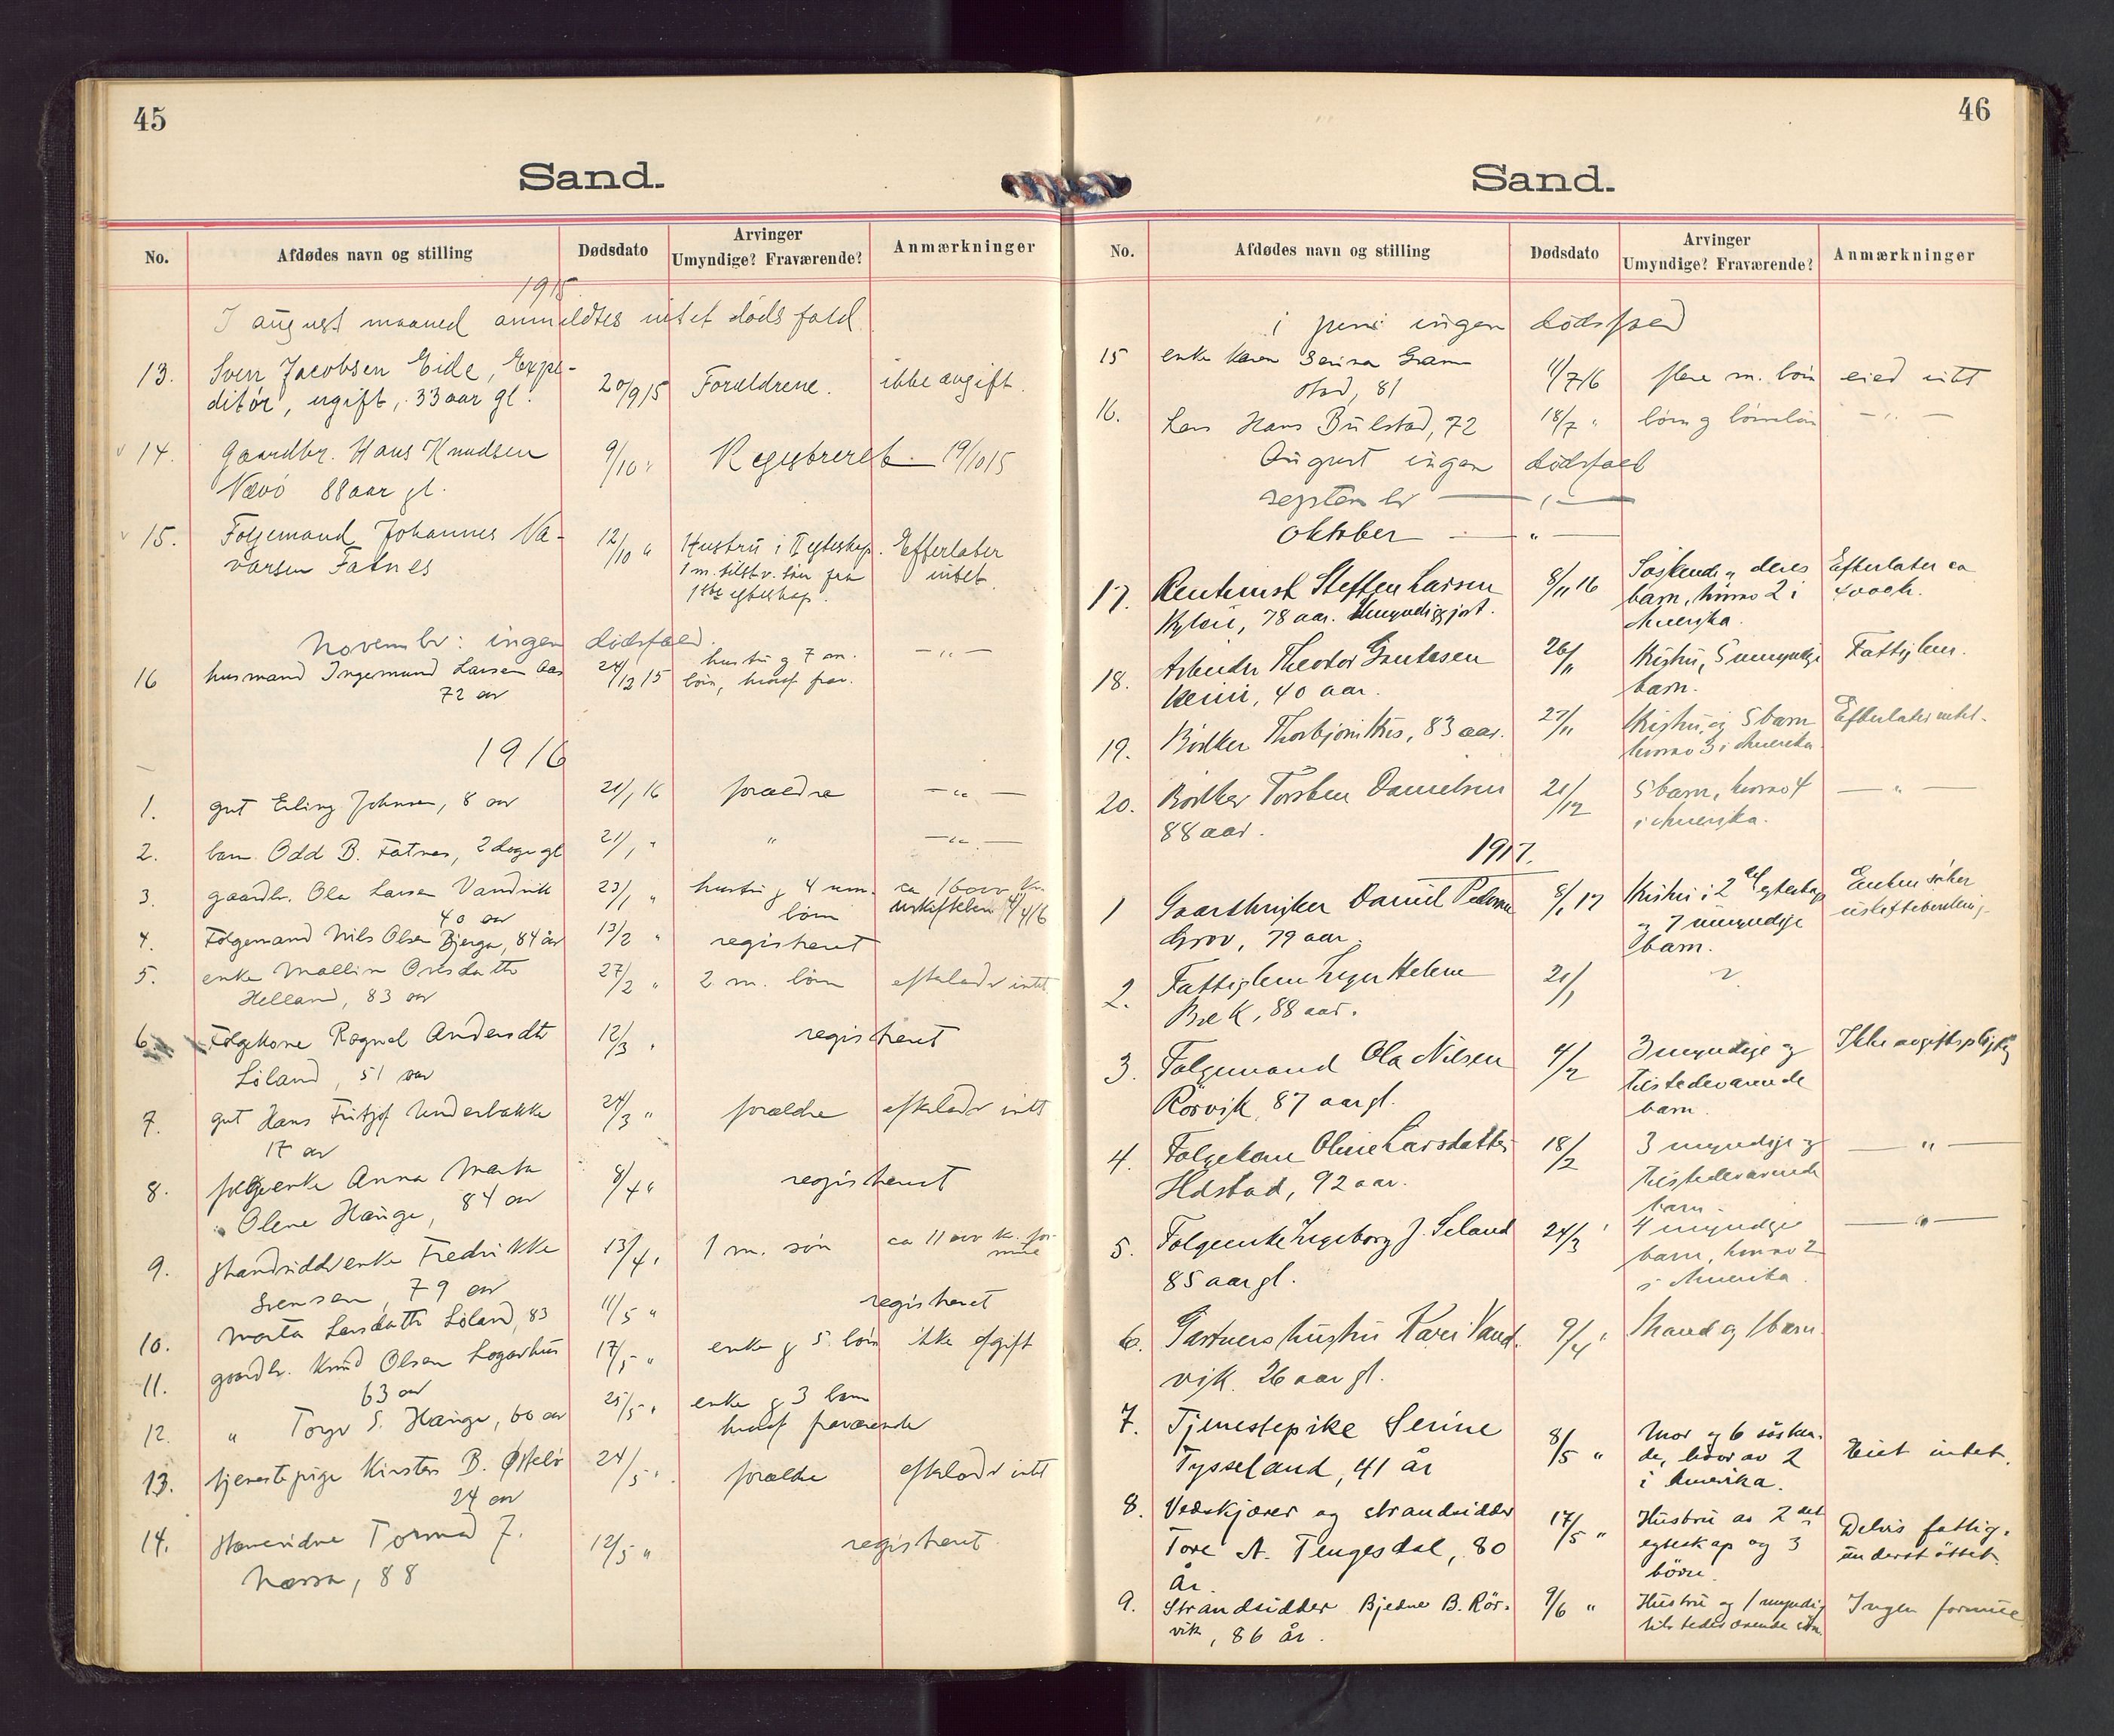 45
Sand.
No. Afdødes navn og stilling Dødsdato Arvinger Umyndige? Fraværende? Anmærkninger
1915
I august maaned anmeldtes intet dødsfald
13. Sven Jacobsen Eide, Expe- 20/9 15 Forældrene. ikke avgift.
ditør, ugift, 33 aar gl.
14. Gaardbr. Hans Knudsen 9/10 " Registreret 19/10 15
Nævø 88 aar gl.
15. Følgemand Johannes Va- 12/10 " Hustru i II egteskap. Efterlater
varsen Fatnes 1 m. tilst.v. søn fra intet.
1ste egteskap.
November: ingen dødsfald.
16 husmand Ingemund Larsen Aas 24/12 15 hustru g 7 m. — " —
72 aar børn, hvoraf frav.
1916
1. gut Erling Johnsen, 8 aar 21/1 16 forældre — " —
2. barn Odd B. Fatnes, 2 dage gl 21/1 " " — " —
3. gaardbr. Ola Larsen Vandvik 23/1 " hustru g 4 um. ca
40 aar børn
4. Følgemand Nils Olsen Bjerga, 84 år 13/2 " registreret
5. enke Mallin 27/2 " 2 m. børn efterlader intet
Helland, 83 aar
6. Følgekone Ragnel Andersdtr 12/3 " registreret
Løland, 51 aar
7. gut Hans Fritjof Underbakke 24/3 " forældre efterlader intet
17 aar
8. følgeenke Anna Marta 8/4 " registreret
Olene Hauge, 84 aar
9. strandsidderenke Fredrikke 13/4 " 1 m. søn ca 1100 kr. for-
Svensen, 79 aar mue
10. Marta Larsdatter Løland, 83 11/5 " registreret
11. gaardbr. Knud Olsen 17/5 " enke g 5 børn ikke afgift
63 aar
12. " S. Hauge, 60 aar 25/5 " enke g 3 børn
hvoraf fraværende
13. tjenestepige Kirsten B. 24/5 " forældre efterlader intet
24 aar
14. Tormod 12/5 " registreret.
88
46
Sand.
No. Afdødes navn og stilling Dødsdato Arvinger Umyndige? Fraværende? Anmærkninger
i juni ingen dødsfald
15 enke Karen Serina Gram 11/7 16 flere m. børn eied intet
81
16. Lars Hans Bulstad, 72 18/7 " børn g børnebørn — " —
August ingen dødsfald
september — " —
oktober — " —
17. Rentenist Steffen Larsen 8/11 16 Søskende og deres Efterlater ca
78 aar. Umyndiggjort. barn, hvorav 2 i 4000 k.
Amerika.
18. Arbeider Theodor 26/11 Hustru, 5 umyndige Fattiglem.
40 aar. barn.
19. Bødker Thorbjørn 83 aar. 27/11 Hustru og 5 barn Efterlater intet.
hvorav 3 i Amerika
20. Bødker Torsten Danielsen 21/12 5 barn, hvorav 4 — " —
88 aar. i Amerika.
1917.
1 Gaardbruker Daniel Pedersen 8/1 17 Hustru i 2det egteskap Enken søker
Grov, 79 aar. og 7 umyndige uskiftebevilling.
barn.
2. Fattiglem Inger Helene 21/1 ?
Bæk, 88 aar.
3. Følgemand Ola Nilsen 4/2 3 myndige og Ikke avgiftspligtig
Rørvik, 87 aar gl. tilstedeværende
barn.
4. Følgekone Oline Larsdatter 18/2 3 myndige og — " —
92 aar. tilstedeværende
barn.
5. Følgeenke Ingeborg J. Seland 24/3 " 4 myndige — " —
85 aar gl. barn, hvorav 2
i Amerika.
6. Gartners hustru Kari Vand- 9/4 " Mand og 1 barn.
vik. 26 aar gl.
7. Tjenestepike Serine 8/5 " Mor og 6 søsken- Eiet intet.
Tysseland, 41 år de, hvorav 2
i Amerika.
8. Vedskjærer og strandsidder 17/5 " Hustru av 2det Delvis fattig-
Tore A. Tengesdal, 80 egteskap og 3 understøttet.
år. børn.
9. Strandsidder Bjedne B. Rør- 9/6 " Hustru og 1 myndig Ingen formue
vik, 86 år. tilstedeværende søn.